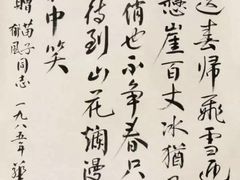 送春归飛雪迎
懸崖百丈冰猶
俏也不争春只
待到山花爛漫
中笑
贈苗子郁風同志
一九八五年